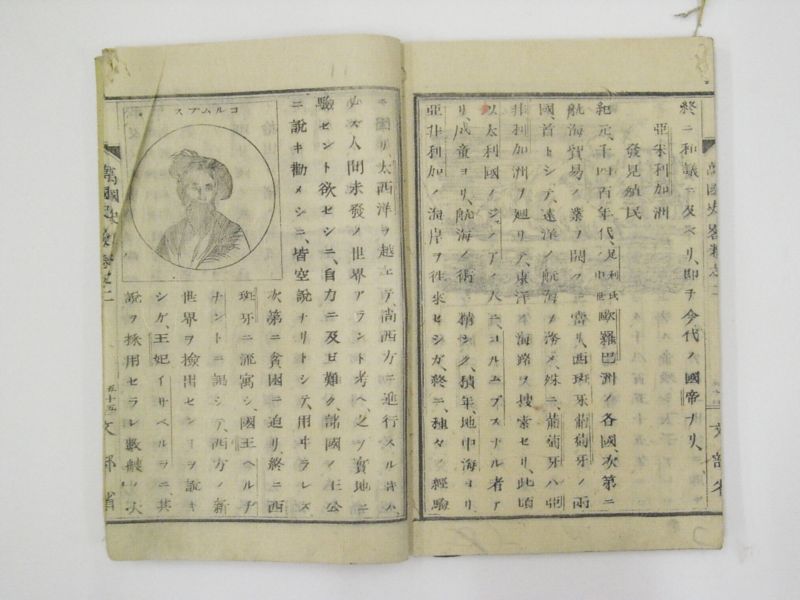 終ニ和議ニ及ベリ、即チ今代ノ國帝ナリ、
亞米利加洲
發見殖民
紀元千四百年代、足利氏ノ中世歐羅巴洲ノ各國、次第ニ
航海貿易ノ業ヲ開クニ當リ、西班牙葡萄牙ノ兩
國、首トシテ、遠洋ノ航海ヲ務メ、殊ニ、葡萄牙ハ、亞
非利加洲ヲ廻リテ、東洋ノ海路ヲ搜索セリ、此頃
以太利國ノジェノアノ人ニ、コルムブスナル者ア
リ、成童ヨリ、航海ノ術ニ精シク、積年、地中海ヨリ、
亞非利加ノ海岸ヲ往來セシガ、終ニ、種々ノ經驗
ニ因リ、太西洋ヲ越エテ、尚西方ニ進行スルトキハ、
必ズ人間未發ノ世界アラント考ヘ、之ヲ實地ニ
驗セント欲セシニ、自力ニ及ビ難ク、諸國ノ王公
ニ說キ勸メシニ、皆空說ナリトシテ、用ヰラレズ
次第ニ貧困ニ迫リ、終ニ西
班牙ニ流寓シ、國王ヘルヂ
ナントニ謁シテ、西方ノ新
世界ヲ檢出センコヲ說キ
シケ、王妃イサベルラニ、其
說ヲ採用セラレ、數艘ノ大
コルムブス
萬國史畧卷之二
五十五
文部省
萬國史畧卷之二
文部省